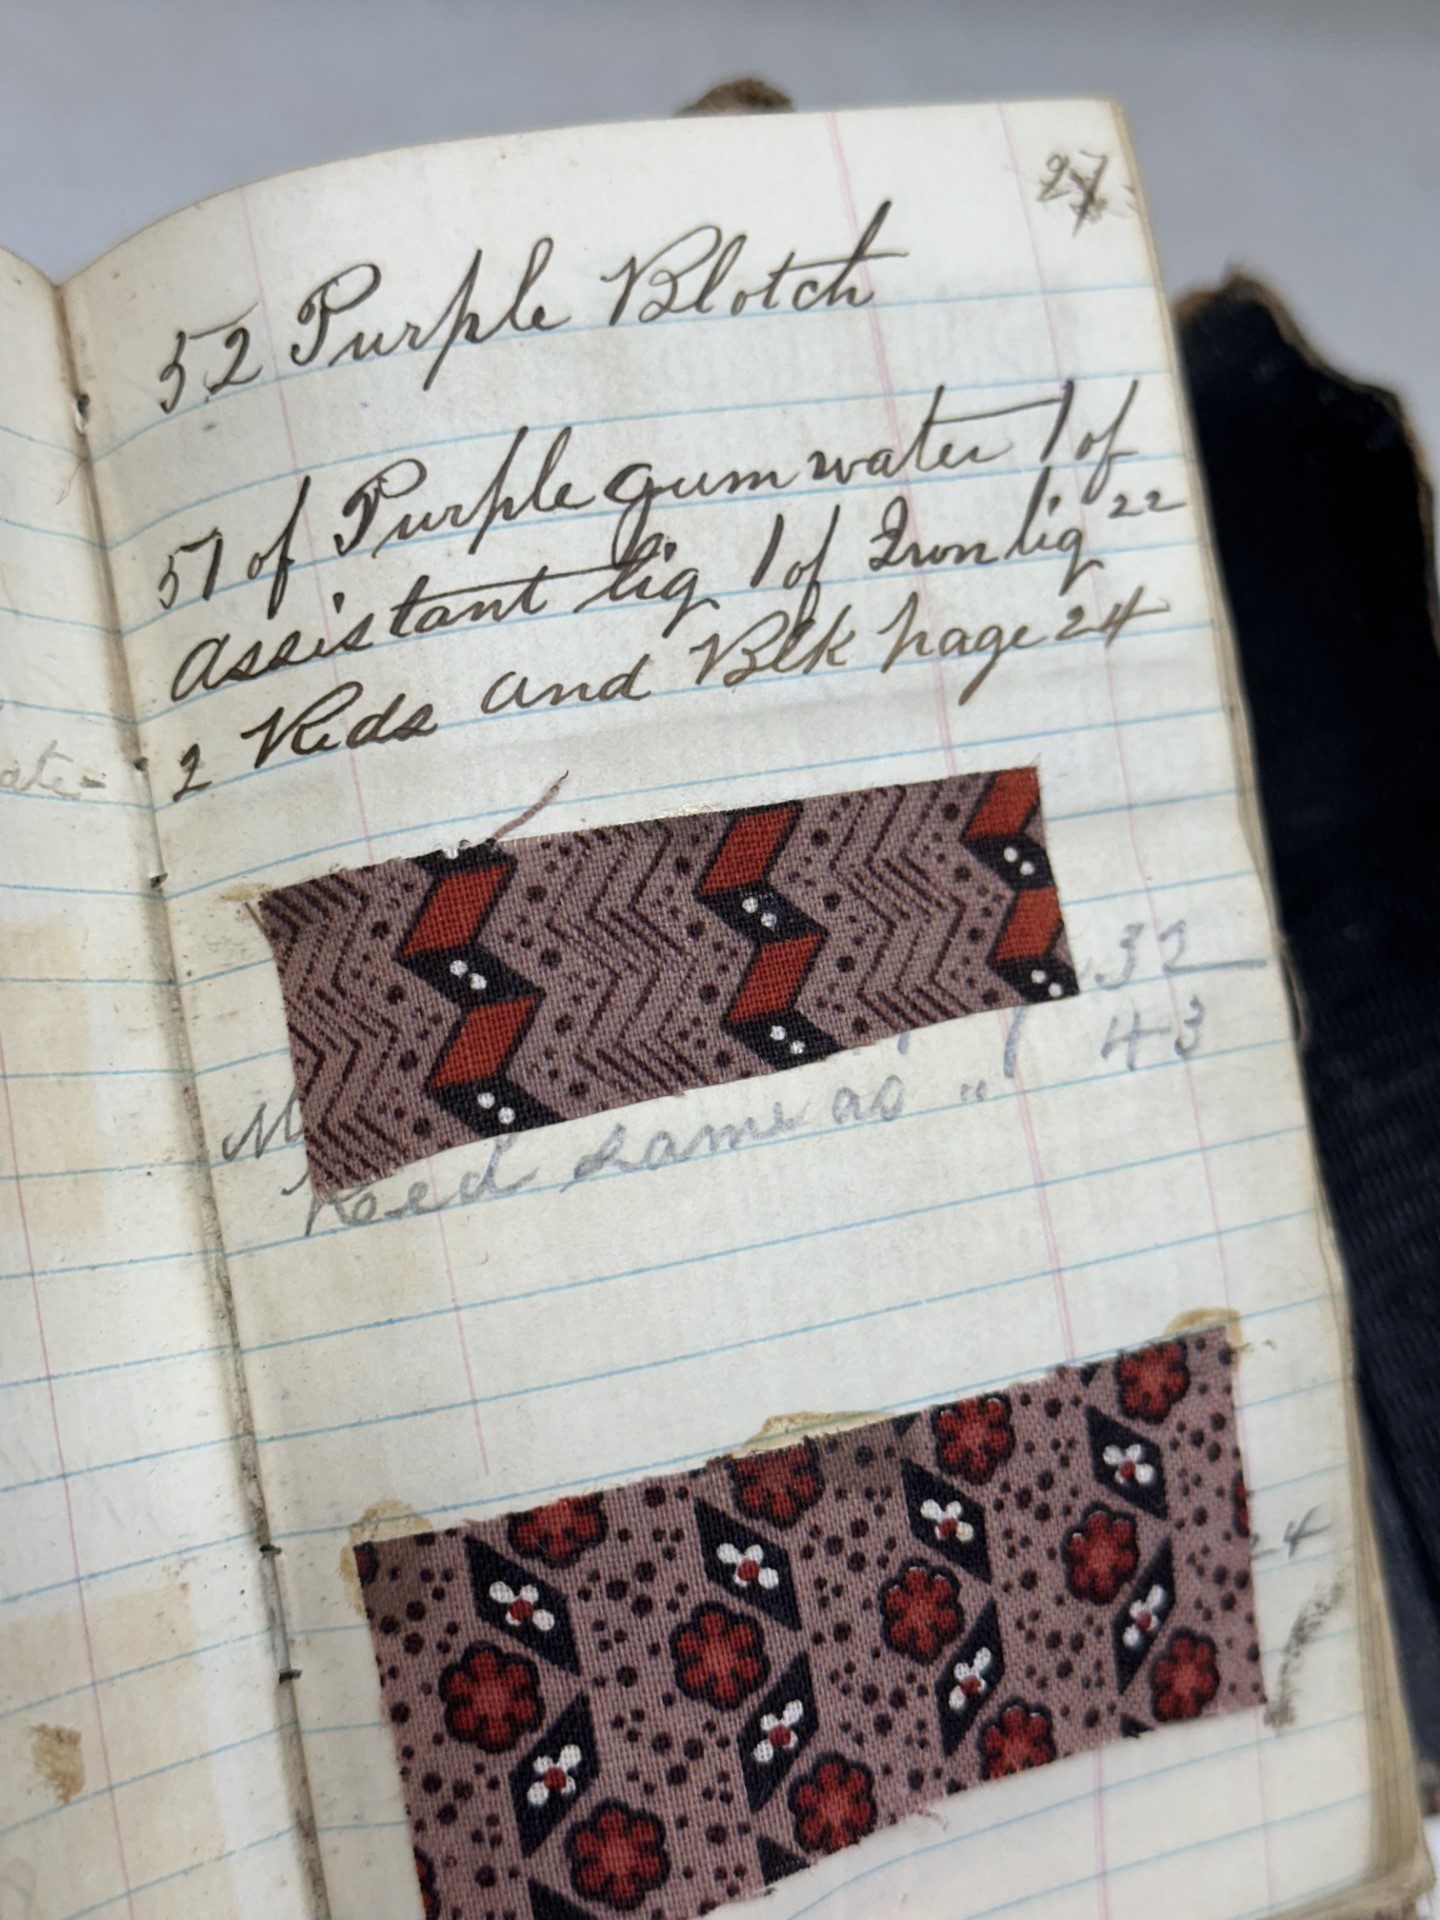 27
52 Purple Blotch
51 of Purple gum water 1 of
assistant liq 1 of Iron liq 22
2 Reds and Blk page 24
ate-
32
M
43
Red same as "
24